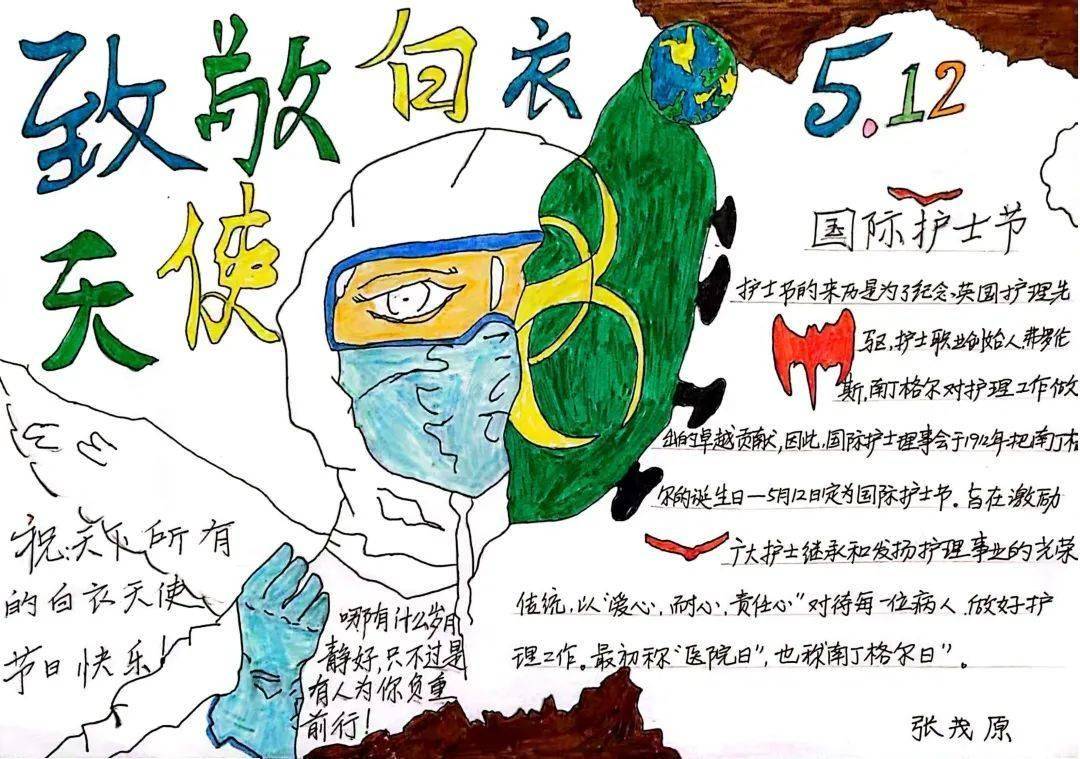 致敬白衣
天使
5.12
国际护士节
护士节的来历是为了纪念英国护理先
驱,护士职业创始人弗罗伦
斯,南丁格尔对护理工作做
出的卓越贡献,因此,国际护士理事会于1912年把南丁格
尔的诞生日—5月12日定为国际护士节。旨在激励
广大护士继承和发扬护理事业的光荣
传统,以“爱心,耐心,责任心”对待每一位病人,做好护
理工作。最初称“医院日”,也称南丁格尔日”。
祝:天下所有
的白衣天使
节日快乐!
哪有什么岁月
静好,只不过是
有人为你负重
前行!
张茂原